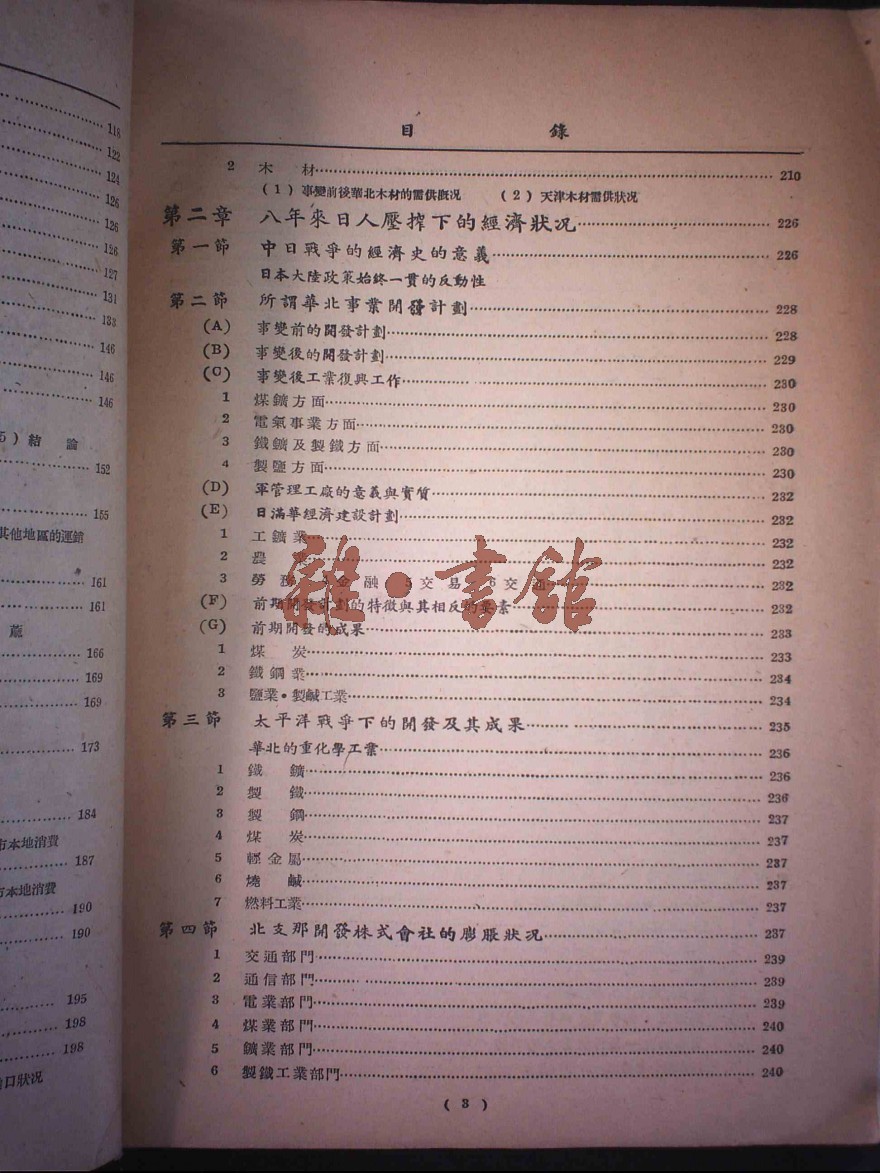 118
122
124
126
126
126
127
131
133
146
146
146
5）結 論
152
155
其他地區的運銷
161
161
166
169
169
173
184
市本地消費
187
市本地消費
190
190
195
198
198
口狀况
目 錄
2 木 材 210
(1) 事變前後華北木材的需供概况 (2) 天津木材需供狀况
第二章 八年來日人壓搾下的經濟狀况 226
第一節 中日戰爭的經濟史的意義 226
日本大陸政策始終一貫的反動性
第二節 所謂華北事業開發計劃 228
(A) 事變前的開發計劃 228
(B) 事變後的開發計劃 229
(C) 事變後工業復興工作 230
1 煤鑛方面 230
2 電氣事業方面 230
3 鐵鑛及製鐵方面 230
4 製鹽方面 230
(D) 軍管理工廠的意義與實質 232
(E) 日滿華經濟建設計劃 232
1 工鑛業 232
2 農 232
3 勞 金融 5 交易 6 交通 232
(F) 前期開發計劃的特徵與其相反的要素 232
(G) 前期開發的成果 233
1 煤 炭 233
2 鐵鋼業 234
3 鹽業·製鹹工業 234
第三節 太平洋戰爭下的開發及其成果 235
華北的重化學工業 236
1 鐵 鑛 236
2 製 鐵 236
3 製 鋼 237
4 煤 炭 237
5 輕金屬 237
6 燒 鹹 237
7 燃料工業 237
第四節 北支那開發株式會社的膨脹狀况 237
1 交通部門 239
2 通信部門 239
3 電業部門 239
4 煤業部門 240
5 鑛業部門 240
6 製鐵工業部門 240
(3)
雜·書館